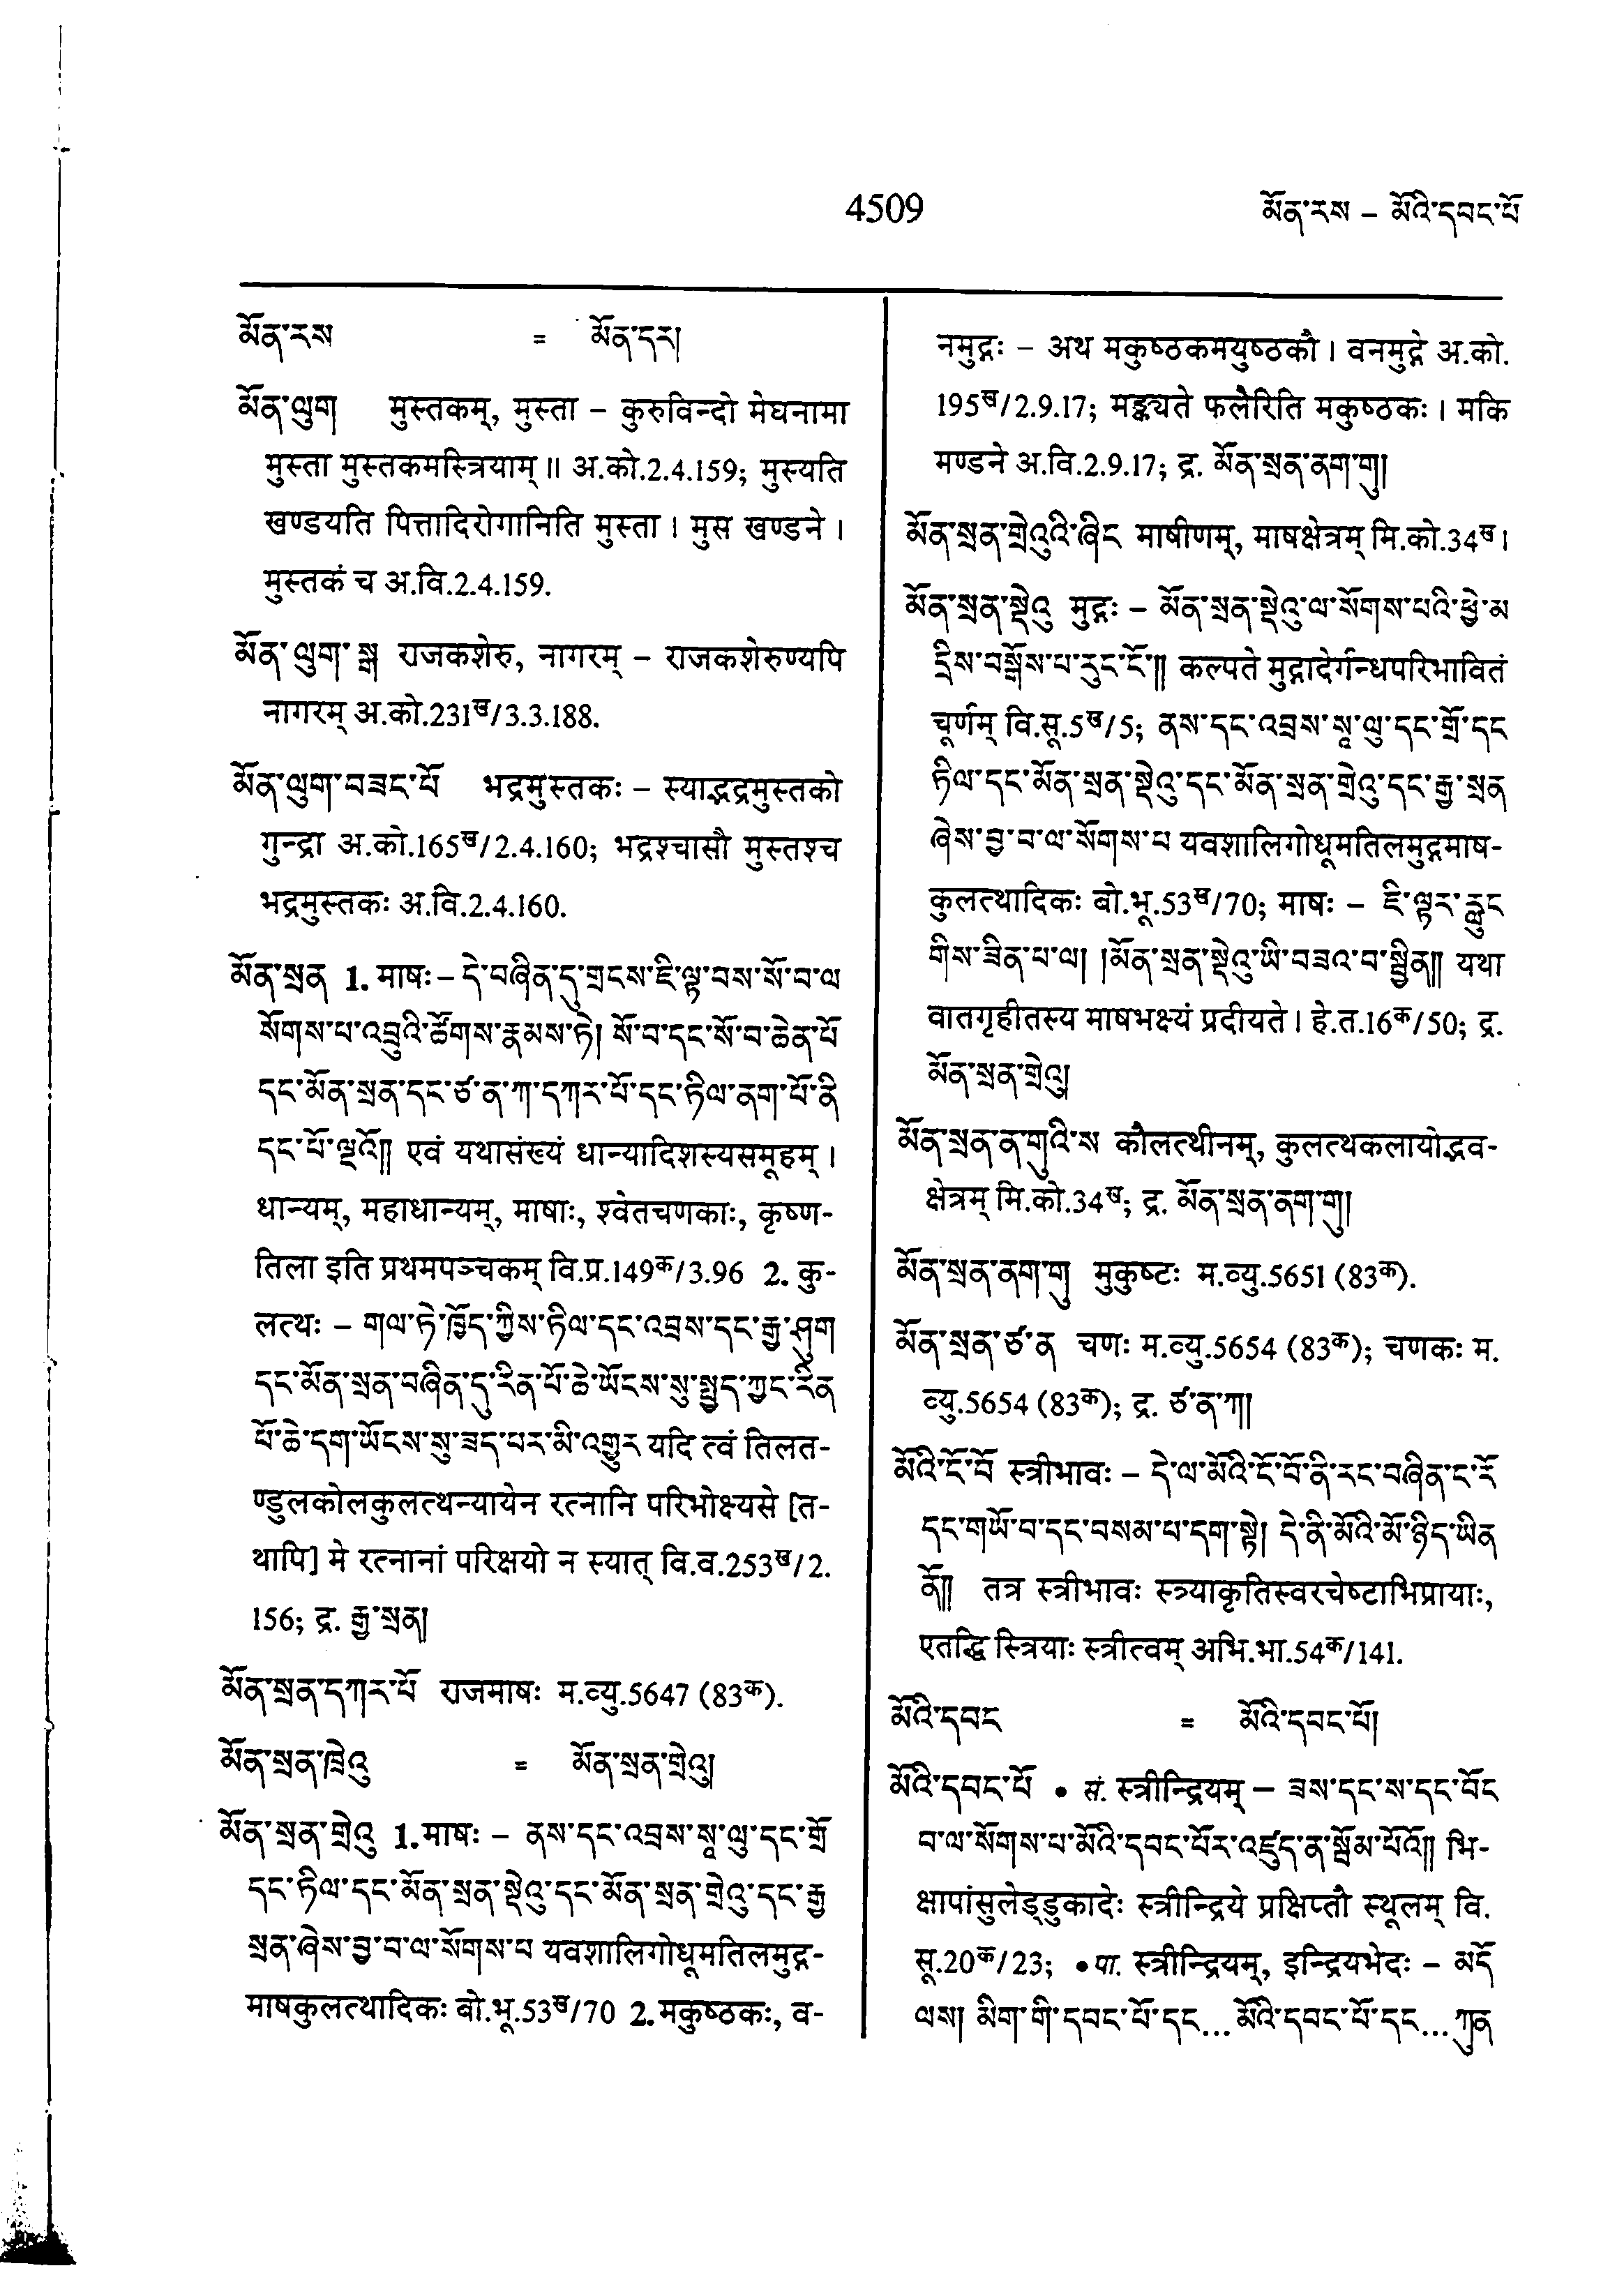 4509 མོན་རས – མོའི་དབང་པོ
མོན་རས = མོན་དར།
མོན་ལུག मुस्तकम्, मुस्ता – कुरुविन्दो मेघनामा
मुस्ता मुस्तकमस्त्रियाम् ॥ अ.को.2.4.159; मुस्यति
खण्डयति पित्तादिरोगानिति मुस्ता । मुस खण्डने ।
मुस्तकं च अ.वि.2.4.159.
མོན་ལུག་སྒ राजकशेरु, नागरम् – राजकशेरुण्यपि
नागरम् अ.को.231ख/3.3.188.
མོན་ལུག་བཟང་པོ भद्रमुस्तकः – स्याद्भद्रमुस्तको
गुन्द्रा अ.को.165ख/2.4.160; भद्रश्चासौ मुस्तश्च
भद्रमुस्तकः अ.वि.2.4.160.
མོན་སྲན 1. माषः – དེ་བཞིན་དུ་གྲངས་ཇི་ལྟ་བས་སོ་བ་ལ
སོགས་པ་འབྲུའི་ཚོགས་རྣམས་ཏེ། སོ་བ་དང་སོ་བ་ཆེན་པོ
དང་མོན་སྲན་དང་ཙ་ན་ཀ་དཀར་པོ་དང་ཏིལ་ནག་པོ་ནི
དང་པོ་ལྔའོ།། एवं यथासंख्यं धान्यादिशस्यसमूहम् ।
धान्यम्, महाधान्यम्, माषाः, श्वेतचणकाः, कृष्ण-
तिला इति प्रथमपञ्चकम् वि.प्र.149क/3.96 2. कु-
लत्थः – གལ་ཏེ་ཁྱོད་ཀྱིས་ཏིལ་དང་འབྲས་དང་རྒྱ་ཤུག
དང་མོན་སྲན་བཞིན་དུ་རིན་པོ་ཆེ་ཡོངས་སུ་སྤྱད་ཀྱང་རིན
པོ་ཆེ་དག་ཡོངས་སུ་ཟད་པར་མི་འགྱུར यदि त्वं तिलत-
ण्डुलकोलकुलत्थन्यायेन रत्नानि परिभोक्ष्यसे [त-
थापि] मे रत्नानां परिक्षयो न स्यात् वि.व.253ख/2.
156; द्र. རྒྱ་སྲན།
མོན་སྲན་དཀར་པོ राजमाषः म.व्यु.5647 (83क).
མོན་སྲན་ཁྲེའུ = མོན་སྲན་གྲེའུ།
མོན་སྲན་གྲེའུ 1. माषः – ནས་དང་འབྲས་སཱ་ལུ་དང་གྲོ
དང་ཏིལ་དང་མོན་སྲན་སྡེའུ་དང་མོན་སྲན་གྲེའུ་དང་རྒྱ
སྲན་ཞེས་བྱ་བ་ལ་སོགས་པ यवशालिगोधूमतिलमुद्ग-
माषकुलत्थादिकः बो.भू.53ख/70 2. मकुष्ठकः, व-
नमुद्गः – अथ मकुष्ठकमयुष्ठकौ । वनमुद्गे अ.को.
195ख/2.9.17; मङ्क्यते फलैरिति मकुष्ठकः । मकि
मण्डने अ.वि.2.9.17; द्र. མོན་སྲན་ནག་གུ།
མོན་སྲན་གྲེའུའི་ཞིང माषीणम्, माषक्षेत्रम् मि.को.34ख ।
མོན་སྲན་སྡེའུ मुद्गः – མོན་སྲན་སྡེའུ་ལ་སོགས་པའི་ཕྱེ་མ
དྲིས་བསྒོས་པ་རུང་ངོ་།། कल्पते मुद्गादेर्गन्धपरिभावितं
चूर्णम् वि.सू.5ख/5; ནས་དང་འབྲས་སཱ་ལུ་དང་གྲོ་དང
ཏིལ་དང་མོན་སྲན་སྡེའུ་དང་མོན་སྲན་གྲེའུ་དང་རྒྱ་སྲན
ཞེས་བྱ་བ་ལ་སོགས་པ यवशालिगोधूमतिलमुद्गमाष-
कुलत्थादिकः बो.भू.53ख/70; माषः – ཇི་ལྟར་རླུང
གིས་ཟིན་པ་ལ། །མོན་སྲན་སྡེའུ་ཡི་བཟའ་བ་སྦྱིན།། यथा
वातगृहीतस्य माषभक्ष्यं प्रदीयते । हे.त.16क/50; द्र.
མོན་སྲན་གྲེའུ།
མོན་སྲན་ན་གུའི་ས कौलत्थीनम्, कुलत्थकलायोद्भव-
क्षेत्रम् मि.को.34ख; द्र. མོན་སྲན་ནག་གུ།
མོན་སྲན་ནག་གུ मुकुष्टः म.व्यु.5651 (83क).
མོན་སྲན་ཙ་ན चणः म.व्यु.5654 (83क); चणकः म.
व्यु.5654 (83क); द्र. ཙ་ན་ཀ།
མོའི་ངོ་བོ स्त्रीभावः – དེ་ལ་མོའི་ངོ་བོ་ནི་རང་བཞིན་ང་རོ
དང་གཡོ་བ་དང་བསམ་པ་དག་སྟེ། དེ་ནི་མོའི་མོ་ཉིད་ཡིན
ནོ།། तत्र स्त्रीभावः स्त्र्याकृतिस्वरचेष्टाभिप्रायाः,
एतद्धि स्त्रियाः स्त्रीत्वम् अभि.भा.54क/141.
མོའི་དབང = མོའི་དབང་པོ།
མོའི་དབང་པོ • सं. स्त्रीन्द्रियम् – ཟས་དང་ས་དང་བོང
བ་ལ་སོགས་པ་མོའི་དབང་པོར་འཛུད་ན་སྦོམ་པོའོ།། भि-
क्षापांसुलेड्डुकादेः स्त्रीन्द्रिये प्रक्षिप्तौ स्थूलम् वि.
सू.20क/23; • पा. स्त्रीन्द्रियम्, इन्द्रियभेदः – མདོ
ལས། མིག་གི་དབང་པོ་དང...མོའི་དབང་པོ་དང...ཀུན